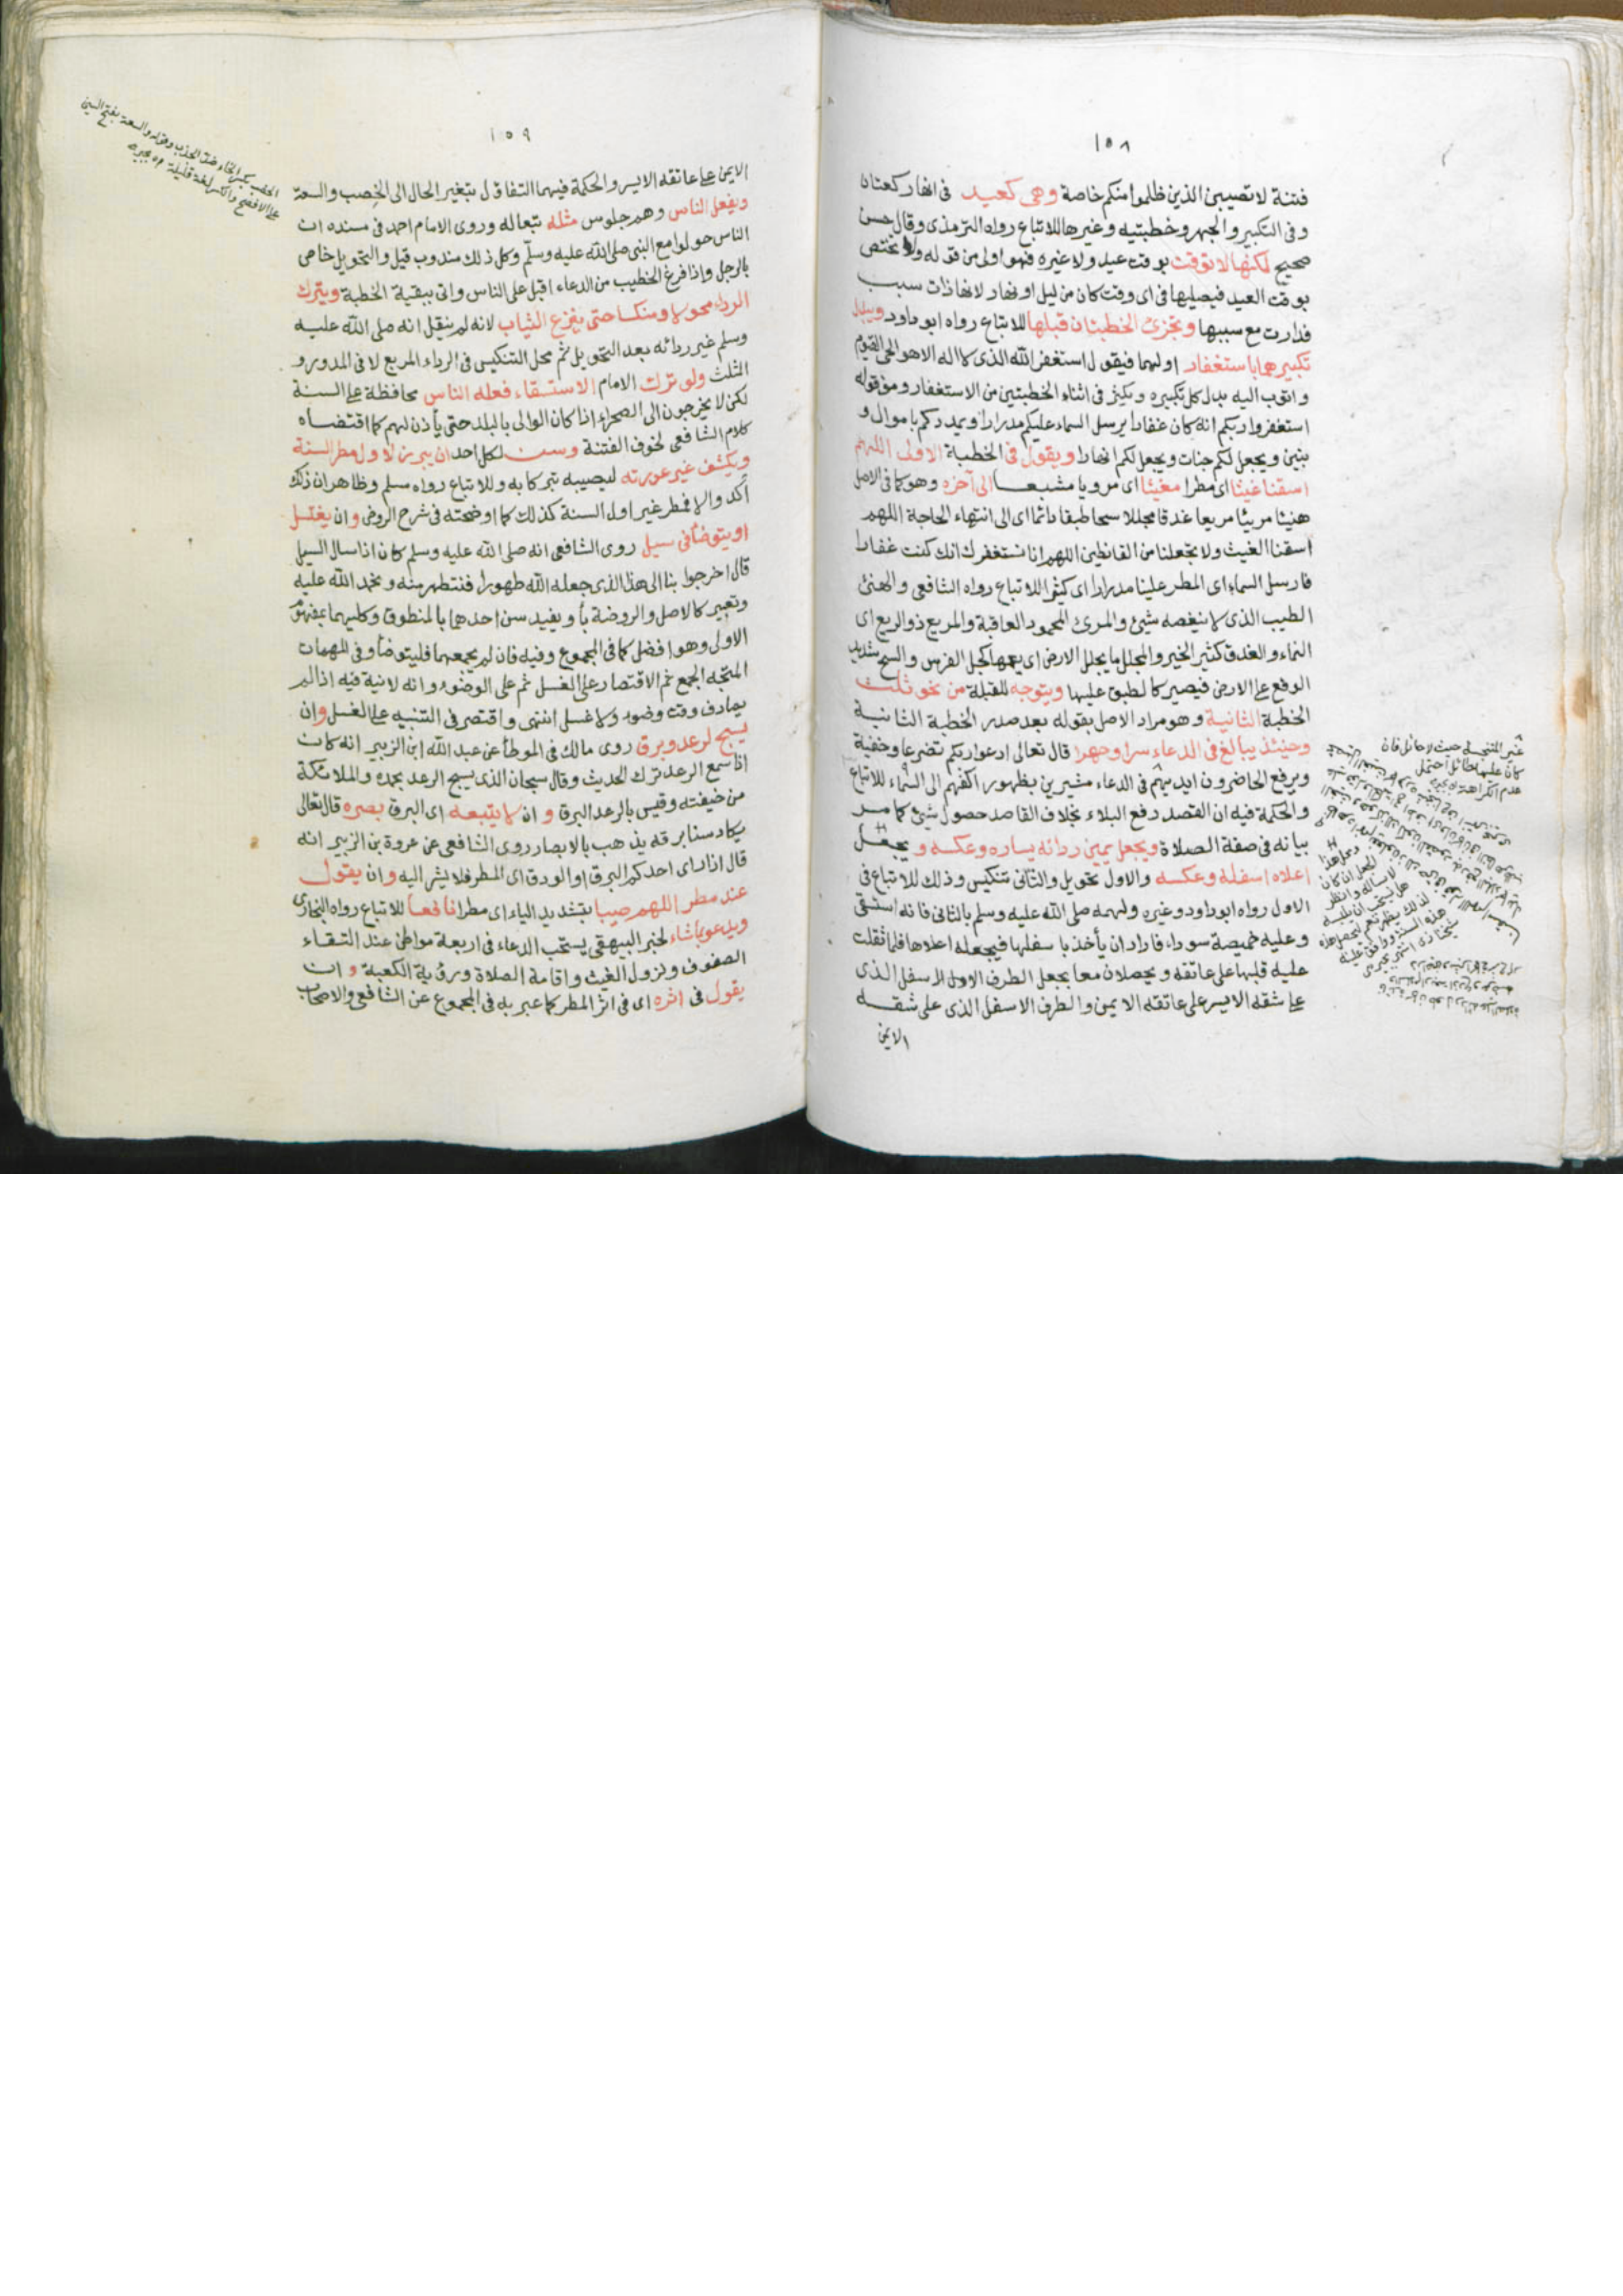 ١٥٨
فتنة لا تصيبن الذين ظلموا منكم خاصة وهي كعيد في انها ركعتان
وفي التكبير والجهر وخطبتيه وغيرها للاتباع رواه الترمذي وقال حسن
صحيح لكنها لا توقت بوقت عيد ولا غيره فهو اولى من قوله ولا تختص
بوقت العيد فيصليها في اى وقت كان من ليل او نهار لانها ذات سبب
فدارت مع سببها وتجزئ الخطبتان قبلها للاتباع رواه ابو داود ويبدل
تكبيرهما باستغفار اولهما فيقول استغفر الله الذي لا اله الا هو الحي القيوم
واتوب اليه بدل كل تكبيره ويكثر في اثناء الخطبتين من الاستغفار ومن قوله
استغفروا ربكم انه كان غفارا يرسل السماء عليكم مدرارا ويمددكم باموال و
بنين ويجعل لكم جنات ويجعل لكم انهارا ويقول في الخطبة الاولى اللهم
اسقنا غيثا اى مطرا مغيثا اى مرويا مشبعا الى آخره وهو كما في الاصل
هنيئا مريئا مريعا غدقا مجللا سحا طبقا دائما اى الى انتهاء الحاجة اللهم
اسقنا الغيث ولا تجعلنا من القانطين اللهم انا نستغفرك انك كنت غفارا
فارسل السماء اى المطر علينا مدرارا اى كثيرا للاتباع رواه الشافعي والهنئ
الطيب الذي لا ينغصه شيئ والمرئ المحمود العاقبة والمريع ذو الريع اى
النماء والغدق كثير الخير والمجلل ما يجلل الارض اى يعمها كجل الفرس والسح شديد
الوقع على الارض فيصير كالطبق عليها ويتوجه للقبلة من نحو ثلث
الخطبة الثانية وهو مراد الاصل بقوله بعد صدر الخطبة الثانية
وحينئذ يبالغ في الدعاء سرا وجهرا قال تعالى ادعوا ربكم تضرعا وخفية
ويرفع الحاضرون ايديهم في الدعاء مشيرين بظهور اكفهم الى السماء للاتباع
والحكمة فيه ان القصد رفع البلاء بخلاف القاصد حصول شيئ كما مر
بيانه في صفة الصلاة ويجعل يمين ردائه يساره وعكسه ويجعل
اعلاه اسفله وعكسه والاول تحويل والثاني تنكيس وذلك للاتباع في
الاول رواه ابو داود وغيره ولهمه صلى الله عليه وسلم بالثاني فانه استسقى
وعليه خميصة سوداء فاراد ان يأخذ باسفلها فيجعله اعلاها فلما ثقلت
عليه قلبها على عاتقه ويحصلان معا بجعل الطرف الاسفل الذي
على شقه الايسر على عاتقه الايمن والطرف الاسفل الذي على شقه
الايمن
غير المتنجسة حيث لا حائل فان
كان عليها حائل احتمل
عدم الكراهة
١٥٩
الايمن على عاتقه الايسر والحكمة فيهما التفاؤل بتغير الحال الى الخصب والسعة
ويفعل الناس وهم جلوس مثله تبعا له وروى الامام احمد في مسنده ان
الناس حولوا مع النبي صلى الله عليه وسلم وكل ذلك مندوب قيل والتحويل خاص
بالرجل واذا فرغ الخطيب من الدعاء اقبل على الناس واتى ببقية الخطبة ويترك
الرداء محولا ومنكسا حتى ينزع الثياب لانه لم ينقل انه صلى الله عليه
وسلم غير ردائه بعد التحويل ثم محل التنكيس في الرداء المربع لا في المدور و
المثلث ولو ترك الامام الاستسقاء فعله الناس محافظة على السنة
لكن لا يخرجون الى الصحراء اذا كان الوالي بالبلد حتى يأذن لهم كما اقتضاه
كلام الشافعي لخوف الفتنة وسن لكل احد ان يبرز لاول مطر السنة
ويكشف غير عورته ليصيبه تبركا به وللاتباع رواه مسلم وظاهر ان ذلك
آكد والا فمطر غير اول السنة كذلك كما اوضحته في شرح الروض وان يغتسل
او يتوضأ في سيل روى الشافعي انه صلى الله عليه وسلم كان اذا سال السيل
قال اخرجوا بنا الى هذا الذي جعله الله طهورا فنتطهر منه ونحمد الله عليه
وتعبير كالاصل والروضة بأو يفيد سن احدهما بالمنطوق وكليهما بمفهوم
الاولى وهو افضل كما في المجموع وفيه فان لم يجمعهما فليتوضأ وفي المهمات
المتجه الجمع ثم الاقتصار على الغسل ثم على الوضوء وانه لا نية فيه اذا لم
يصادف وقت وضوء ولا غسل انتهى واقتصر في التنبيه على الغسل وان
يسبح لرعد وبرق روى مالك في الموطأ عن عبد الله ابن الزبير انه كان
اذا سمع الرعد ترك الحديث وقال سبحان الذي يسبح الرعد بحمده والملائكة
من خيفته وقيس بالرعد البرق و ان لا يتبعه اى البرق بصره قال تعالى
يكاد سنا برقه يذهب بالابصار روى الشافعي عن عروة بن الزبير انه
قال اذا راى احدكم البرق او الودق اى المطر فلا يشر اليه وان يقول
عند مطر اللهم صيبا بتشديد الياء اى مطرا نافعا للاتباع رواه البخارى
ويدعو بما شاء لخبر البيهقي يستحب الدعاء في اربعة مواطن عند التقاء
الصفوف ونزول الغيث واقامة الصلاة ورؤية الكعبة و ان
يقول في اثره اى في اثر المطر كما عبر به في المجموع عن الشافعي والاصحاب
الخصب بكسر الخاء ضد الجدب وقوله والسعة بفتح السين
على الافصح والكسر لغة قليلة